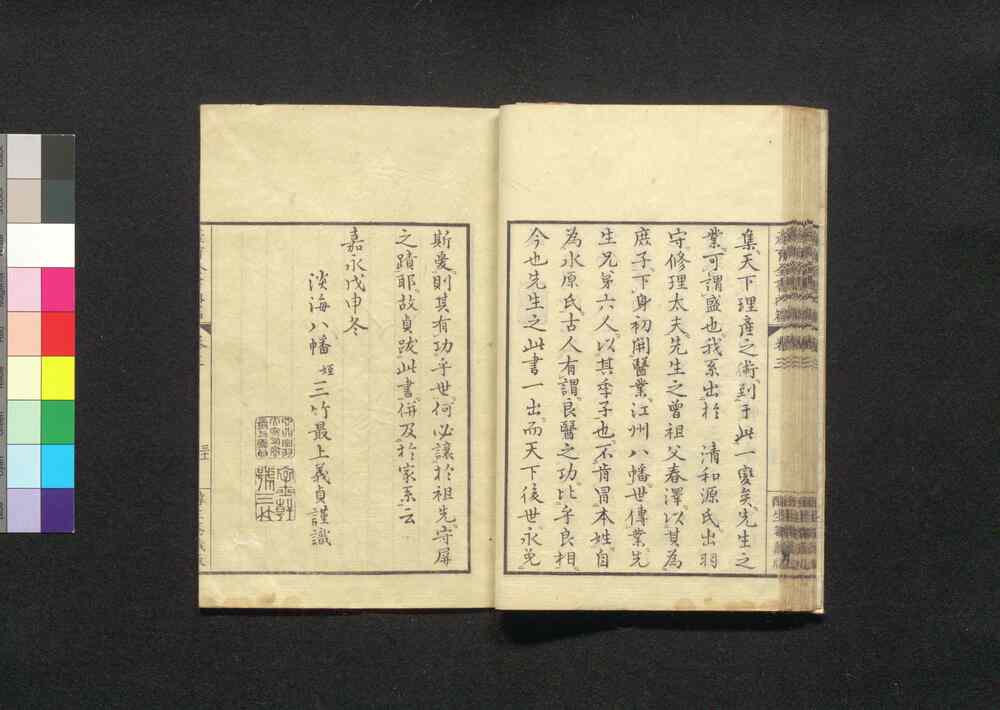 集天下理産之術到于此一變矣先生之
業可謂盛也我系出於　清和源氏出羽
守修理太夫先生之曾祖父春澤以其為
庶子下身初開醫業江州八幡世傳業先
生兄弟六人以其季子也不肯冒本姓自
為水原氏古人有謂良醫之功比乎良相
今也先生之此書一出而天下後世永免
斯憂則其有功乎世何必讓於祖先守屏
之蹟耶故貞跋此書併及於家系云
嘉永戊申冬
淡海八幡　姪三竹最上義貞謹識